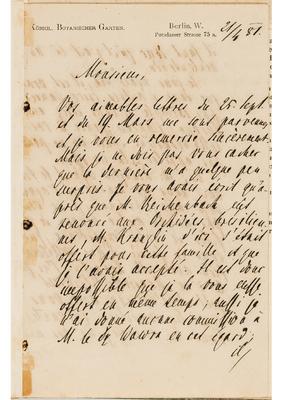 KÖNIGL. BOTANISCHER GARTEN.
Berlin, W.
Potsdamer Strasse 75 a.
21/4 81.
Monsieur,
Vos aimables lettres du 25 Sept.
et du 19. Mars me sont parvenues
et je vous en remercie sincèrement.
Mais je ne dois pas vous cacher
que la dernière m'a quelque peu
surpris. Je vous avais écrit qu'a-
près que M. Reichenbach eut
renoncé aux Orchidées brésilien-
nes, M. Kränzlin d'ici s'était
offert pour cette famille et que
je l'avais accepté. Il est donc
impossible que je la vous eusse
offert en même temps; aussi je
n'ai donné aucune commission à
M. le Dr Wawra en cet égard;